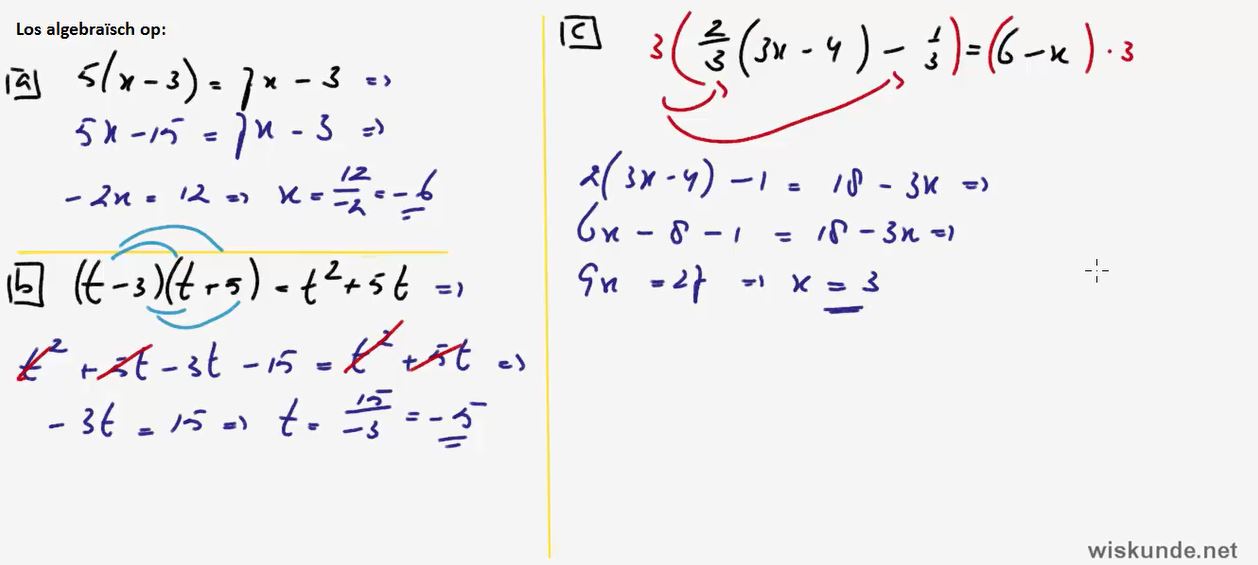 Los algebraïsch op:
a 5(x - 3) = 7x - 3 =>
5x - 15 = 7x - 3 =>
-2x = 12 => x = 12/-2 = -6
b (t - 3)(t + 5) = t² + 5t =>
t² + 5t - 3t - 15 = t² + 5t =>
-3t = 15 => t = 15/-3 = -5
c 3(2/3(3x - 4) - 1/3) = (6 - x) · 3
2(3x - 4) - 1 = 18 - 3x =>
6x - 8 - 1 = 18 - 3x =>
9x = 27 => x = 3
wiskunde.net